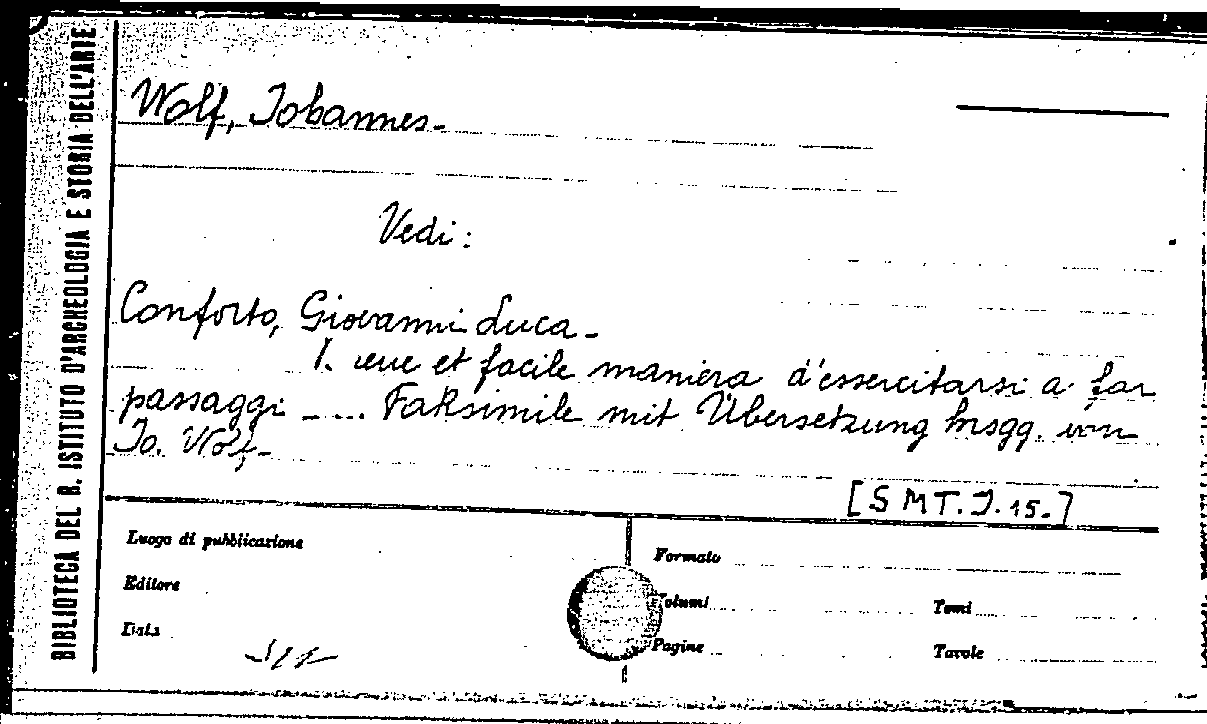 BIBLIOTECA DEL R. ISTITUTO D'ARCHEOLOGIA E STORIA DELL'ARTE
Wolf, Johannes-
Vedi:
Conforto, Giovanni Luca-
et facile maniera d'essercitarsi a far
passaggi _... Faksimile mit Übersetzung hrsgg. von
Jo. Wolf-
[SMT. J. 15-]
Luogo di pubblicazione
Formato
Editore
Volumi
Tomi
Data
Pagine
Tavole